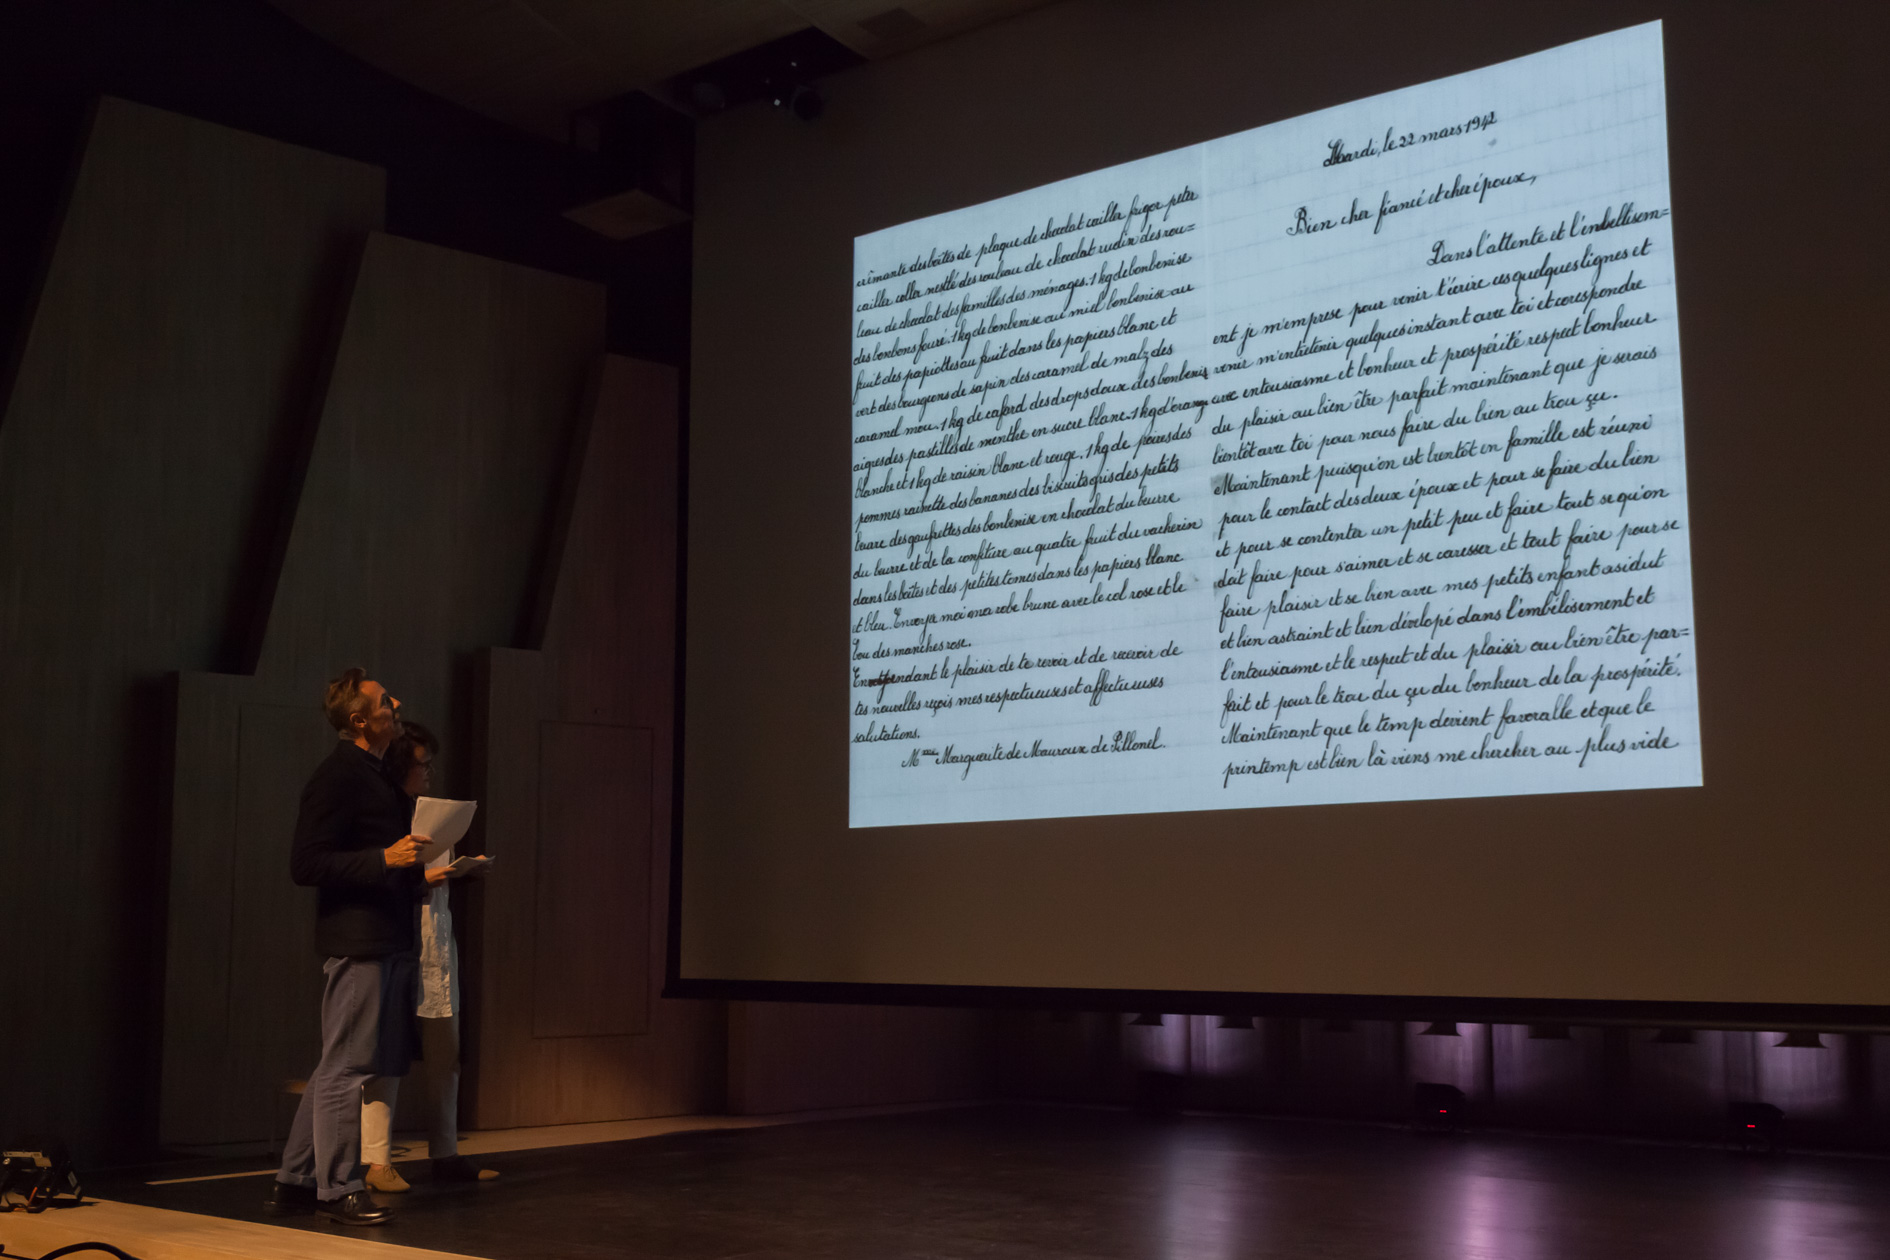 crêmante des boîtes de plaque de chocolat cailler frigor peter
cailler coller nestlé des rouleau de chocolat sudin des rou=
leau de chocolat des familles des ménages. 1 kg de bonbenise
des bonbons fouré. 1 kg de bonbenise au miel bonbenise au
fruit des papiottes au fruit dans les papiers blanc et
vert des bourgeons de sapin des caramel de malz des
caramel mou. 1 kg de cafard des drops doux des bonbenis
aigres des pastilles de menthe en sucre blanc. 1 kg d'orange
blanche et 1 kg de raisin blanc et rouge. 1 kg de poires des
pommes rainette des bananes des biscuits gris des petits
beurre des gaufrettes des bonbenise en chocolat du beurre
du beurre et de la confiture au quatre fruit du vacherin
dans les boîtes et des petites tomes dans les papiers blanc
et bleu. Envoya moi ma robe brune avec le col rose et le
bou des manches rose.
En attendant le plaisir de te revoir et de recevoir de
tes nouvelles reçois mes respectueuses et affectueuses
salutations.
Mme Marguerite de Mauroux de Pillonel.
Mardi, le 22 mars 1942
Bien cher fiancé et cher époux,
Dans l'attente et l'embellisem=
ent je m'emprese pour venir t'écrire ces quelques lignes et
venir m'entretenir quelques instant avec toi et corespondre
avec entousiasme et bonheur et prospérité respect bonheur
du plaisir au bien être parfait maintenant que je serais
bientôt avec toi pour nous faire du bien au trou çu.
Maintenant puisqu'on est bientôt en famille est réuni
pour le contact des deux époux et pour se faire du bien
et pour se contenter un petit peu et faire tout se qu'on
doit faire pour s'aimer et se caresser et tout faire pour se
faire plaisir et se bien avec mes petits enfant asidut
et bien astraint et bien dévelopé dans l'embélisement et
l'entousiasme et le respect et du plaisir au bien être par=
fait et pour le trou du çu du bonheur de la prospérité.
Maintenant que le temp devient favoralle et que le
printemp est bien là viens me chercher au plus vide